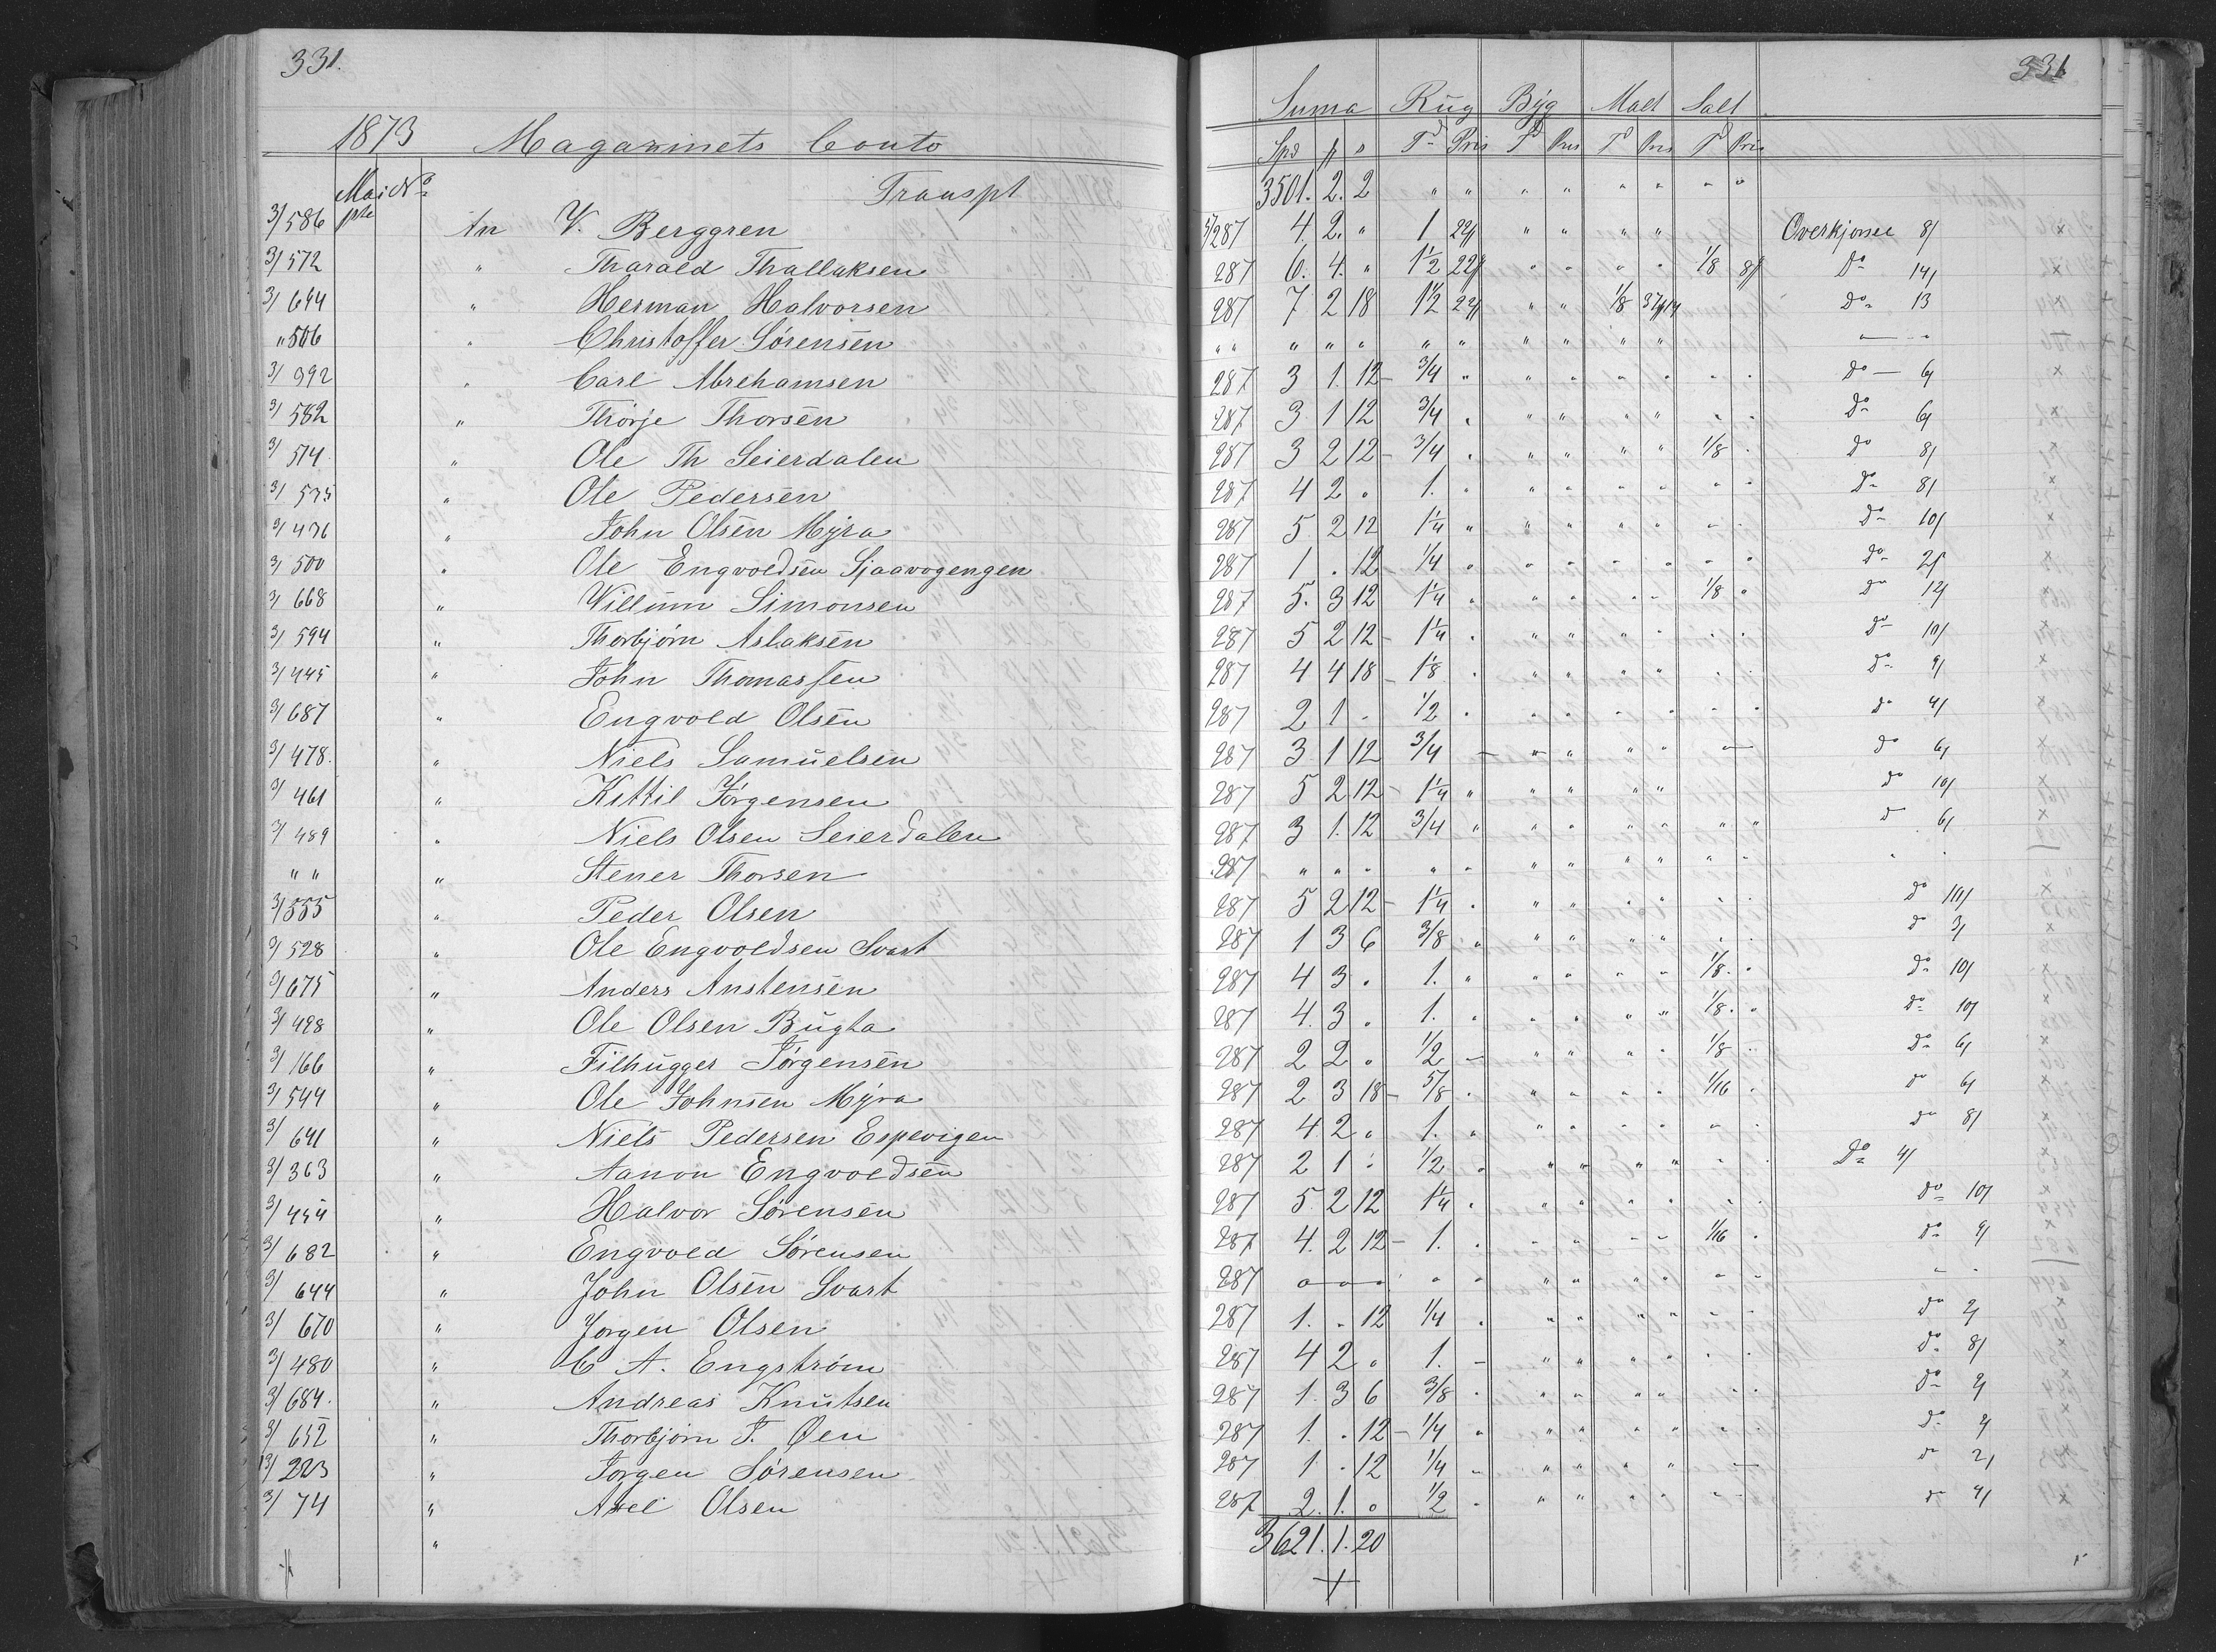 331. 331
Suma Rug Byg Malt Salt
1873 Magazinets Conto Spd Td Pris Td Pris Td Pris Td Pris
Mai No Transpt 3501. 2. 2 " " " " " " " "
3/ 586 An V. Berggren 287 4. 2. " 1 22 " " " " Overkjonei 8/
3/ 572 " Tharald Thallaksen 287 6. 4. " 1½ 22 " " " " 1/8 8 Do 14/
3/ 644 " Herman Halvorsen 287 7 2 18 1½ 22 " " 1/8 Do 13
" 506 " Christoffer Sörensen " " " " " " " " " " "
3/ 392 " Carl Abrehamsen 287 3 1. 12 3/4 " " " " " " " Do 6/
3/ 582 " Thorje Thorsen 287 3 1 12 3/4 " " " " " " " Do 6/
3/ 574 " Ole Th Seierdalen 287 3 2 12 3/4 " " " " " 1/8 " Do 8/
3/ 535 " Ole Pedersen 287 4 2 " 1. " " " " " " " Do 8/
3/ 436 " John Olsen Myra 287 5 2 12 1¼ " " " " " " " Do 10/
3/ 500 " Ole Engvoldsen Sjaavogengen 287 1 . 12 1/4 " " " " " " " Do 2/
3/ 668 " Willum Simonsen 287 5. 3 12 1¼ " " " " " 1/8 " Do 12/
3/ 594 " Thorbjörn Aslaksen 287 5 2 12 1¼ " " " " " " " Do 10/
3/ 445 " John Thomassen 287 4 4 18 1 1/8 " " " " " " " Do 9/
3/ 687 " Engvold Olsen 287 2 1 - 1/2 " " " " " " " Do 4/
3/ 478. " Niels Samuelsen 287 3 1 12 3/4 " " " " " " Do 6/
3/ 461 " Kittil Jörgensen 287 5 2 12 1¼ " " " " " Do 10/
3/ 489 " Niels Olsen Seierdalen 287 3 1. 12 3/4 " " " " " " " D 6/
" " " Stener Thorsen 287 " " " " " " " " " " "
3/ 555 " Peder Olsen 287 5 2 12 1¼ " " " " " " " Do 10/
3/ 528 " Ole Engvoldsen Svart 287 1 3 6 3/8 " " " " " " " Do 3/
3/ 675 " Anders Anstensen 287 4 3 . 1. " " " " " 1/8 " Do 10/
3/ 498 " Ole Olsen Bugta 287 4. 3 . 1. " " " " " 1/8 " Do 10/
3/ 166 " Filhugger Jörgensen 287 2 2 . 1/2 " " " " " 1/8 " Do 6/
3/ 544 " Ole Johnsen Myra 287 2 3 18 5/8 " " " " " 1/16 " Do 6/
3/ 641 " Niels Pedersen Espevigen 287 4 2 . 1. " " " " " " " Do 8/
3/ 363 " Aanon Engvoldsen 287 2 1 . 1/2 " " " " " " " Do 4/
3/ 454 " Halvor Sörensen 287 5. 2 12 1¼ " " " " " " " Do 10/
3/ 682 " Engvold Sörensen 287 4. 2 12 1. " " " " " 1/16 " Do 9/
3/ 644 " John Olsen Svart 287 " " " " " " " " " " "
3/ 670 " Jorgen Olsen 287 1. . 12 1/4 " " " " " " " Do 2/
3/ 480 " C A. Engström 287 4 2 . 1. " " " " " " " Do 8/
3/ 684. " Andreas Knutsen 287 1. 3 6 3/8 " " " " " " " Do
3/ 652 " Thorbjörn T. Öen 287 1. . 12 1/4 " " " " " " " Do 2/
13/ 223 " Jorgen Sörensen 287 1 . 12 1/4 " " " " " Do 2/
3/ 74 " Axel Olsen 287 2. 1. . 1/2 " " " " " " " Do 4/
" 3621. 1. 20